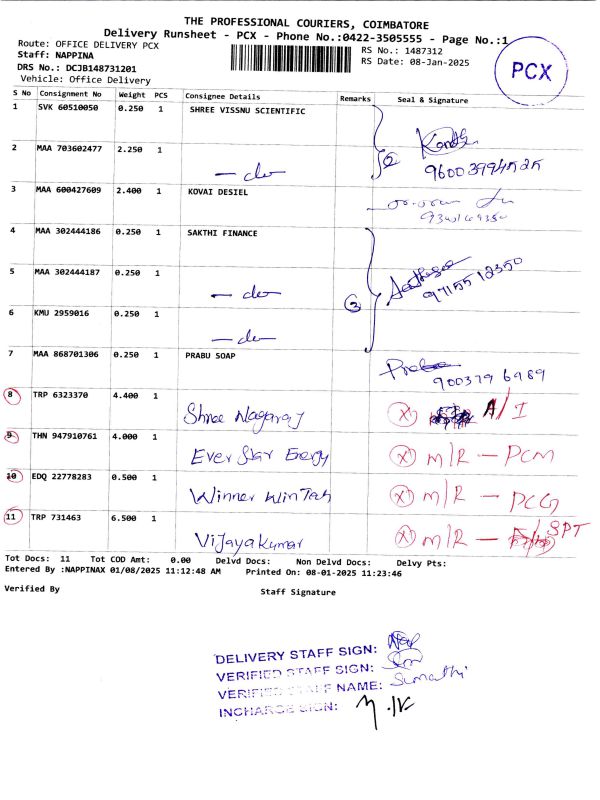 THE PROFESSIONAL COURIERS, COIMBATORE
Delivery Runsheet - PCX - Phone No.:0422-3505555 - Page No.:1
Route: OFFICE DELIVERY PCX
RS No.: 1487312
Staff: NAPPINA
RS Date: 08-Jan-2025
DRS No.: DCJB148731201
Vehicle: Office Delivery
PCX
S No Consignment No Weight PCS Consignee Details Remarks Seal & Signature
1 SVK 60510050 0.250 1 SHREE VISSNU SCIENTIFIC
2 MAA 703602477 2.250 1 — do — 2
3 MAA 600427609 2.400 1 KOVAI DESIEL
4 MAA 302444186 0.250 1 SAKTHI FINANCE
5 MAA 302444187 0.250 1 — do — 3 9715512350
6 KMU 2959016 0.250 1 — do —
7 MAA 868701306 0.250 1 PRABU SOAP 9003796989
8 TRP 6323370 4.400 1 Shree Nagaraj X A/I
9 THN 947910761 4.000 1 Ever Star Energy X M/R — PCM
10 EDQ 22778283 0.500 1 Winner WinTah X M/R — PCG
11 TRP 731463 6.500 1 Vijayakumar X M/R — SPT
Tot Docs: 11 Tot COD Amt: 0.00 Delvd Docs: Non Delvd Docs: Delvy Pts:
Entered By :NAPPINAX 01/08/2025 11:12:48 AM Printed On: 08-01-2025 11:23:46
Verified By Staff Signature
DELIVERY STAFF SIGN:
VERIFIED STAFF SIGN:
VERIFIED STAFF NAME: Sumathi
INCHARGE SIGN: